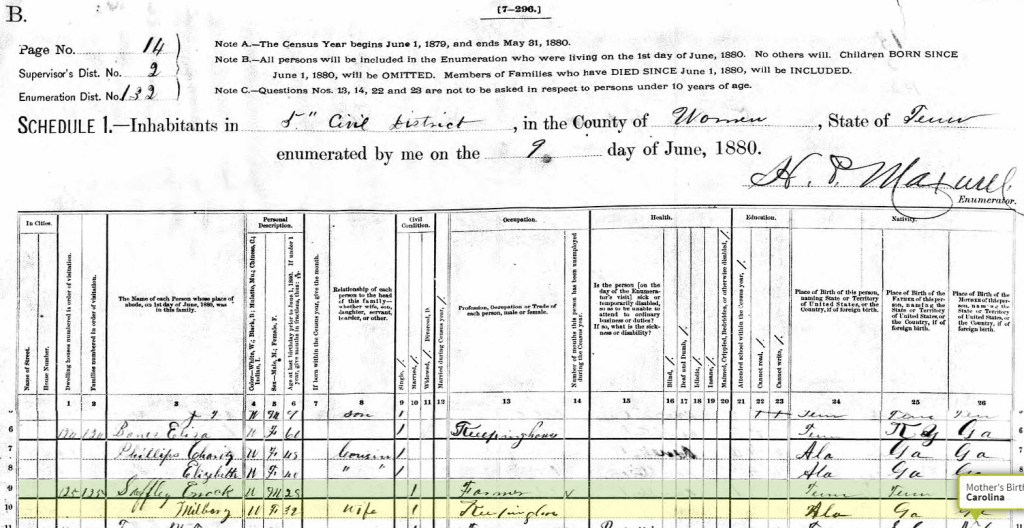 B.
[7-296.]
Page No. 14
Supervisor's Dist. No. 2
Enumeration Dist. No. 132
Note A.—The Census Year begins June 1, 1879, and ends May 31, 1880.
Note B.—All persons will be included in the Enumeration who were living on the 1st day of June, 1880. No others will. Children BORN SINCE
June 1, 1880, will be OMITTED. Members of Families who have DIED SINCE June 1, 1880, will be INCLUDED.
Note C.—Questions Nos. 13, 14, 22 and 23 are not to be asked in respect to persons under 10 years of age.
SCHEDULE 1.—Inhabitants in 5" Civil District, in the County of , State of Tenn
enumerated by me on the 9 day of June, 1880.
H. P. Maxwell
Enumerator.
In Cities.
Personal Description.
Civil Condition.
Occupation.
Health.
Education.
Nativity.
Name of Street.
House Number.
Dwelling houses numbered in order of visitation.
Families numbered in order of visitation.
The Name of each Person whose place of abode, on 1st day of June, 1880, was in this family.
Color—White, W.; Black, B.; Mulatto, Mu.; Chinese, C.; Indian, I.
Sex—Male, M.; Female, F.
Age at last birthday prior to June 1, 1880. If under 1 year, give months in fractions, thus:
If born within the Census year, give the month.
Relationship of each person to the head of this family—whether wife, son, daughter, servant, boarder, or other.
Single, /.
Married, /.
Widowed, /. Divorced, D.
Married during Census year, /.
Profession, Occupation or Trade of each person, male or female.
Number of months this person has been unemployed during the Census year.
Is the person [on the day of the Enumerator's visit] sick or temporarily disabled, so as to be unable to attend to ordinary business or duties? If so, what is the sickness or disability?
Blind, /.
Deaf and Dumb, /.
Idiotic, /.
Insane, /.
Maimed, Crippled, Bedridden, or otherwise disabled, /.
Attended school within the Census year, /.
Cannot read, /.
Cannot write, /.
Place of Birth of this person, naming State or Territory of United States, or the Country, if of foreign birth.
Place of Birth of the FATHER of this person, naming the State or Territory of United States, or the Country, if of foreign birth.
Place of Birth of the MOTHER of this person, naming the State or Territory of United States, or the Country, if of foreign birth.
1 2 3 4 5 6 7 8 9 10 11 12 13 14 15 16 17 18 19 20 21 22 23 24 25 26
W M son / Tenn Tenn Tenn
6 Eliza W F / Keepinghouse Tenn Ga 6
7 Phillips Charity W F Cousin / Ala Ga Ga 7
8 Elizabeth W F " " / Ala Ga Ga 8
9 125 125 Enock W M / Farmer Tenn Tenn
10 W F Wife / Ala Ga
Mother's Birth
Carolina